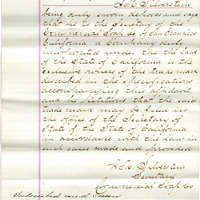 L. C. Silverstein
being duly sworn deposes and says
that he is the Secretary of the
Commercial Soap Co of San Francisco
California a company duly
incorporated under the laws
of the State of California is the
exclusive owner of the trade mark
described in the specification
accompanying this affidavit
and he petitions that the said
trade mark may be filed in
the office of the Secretary of
State of the State of California
in accordance with the law in
such cases made and provided
Silverstein
Secretary
Commercial Soap Co
Subscribed and Sworn